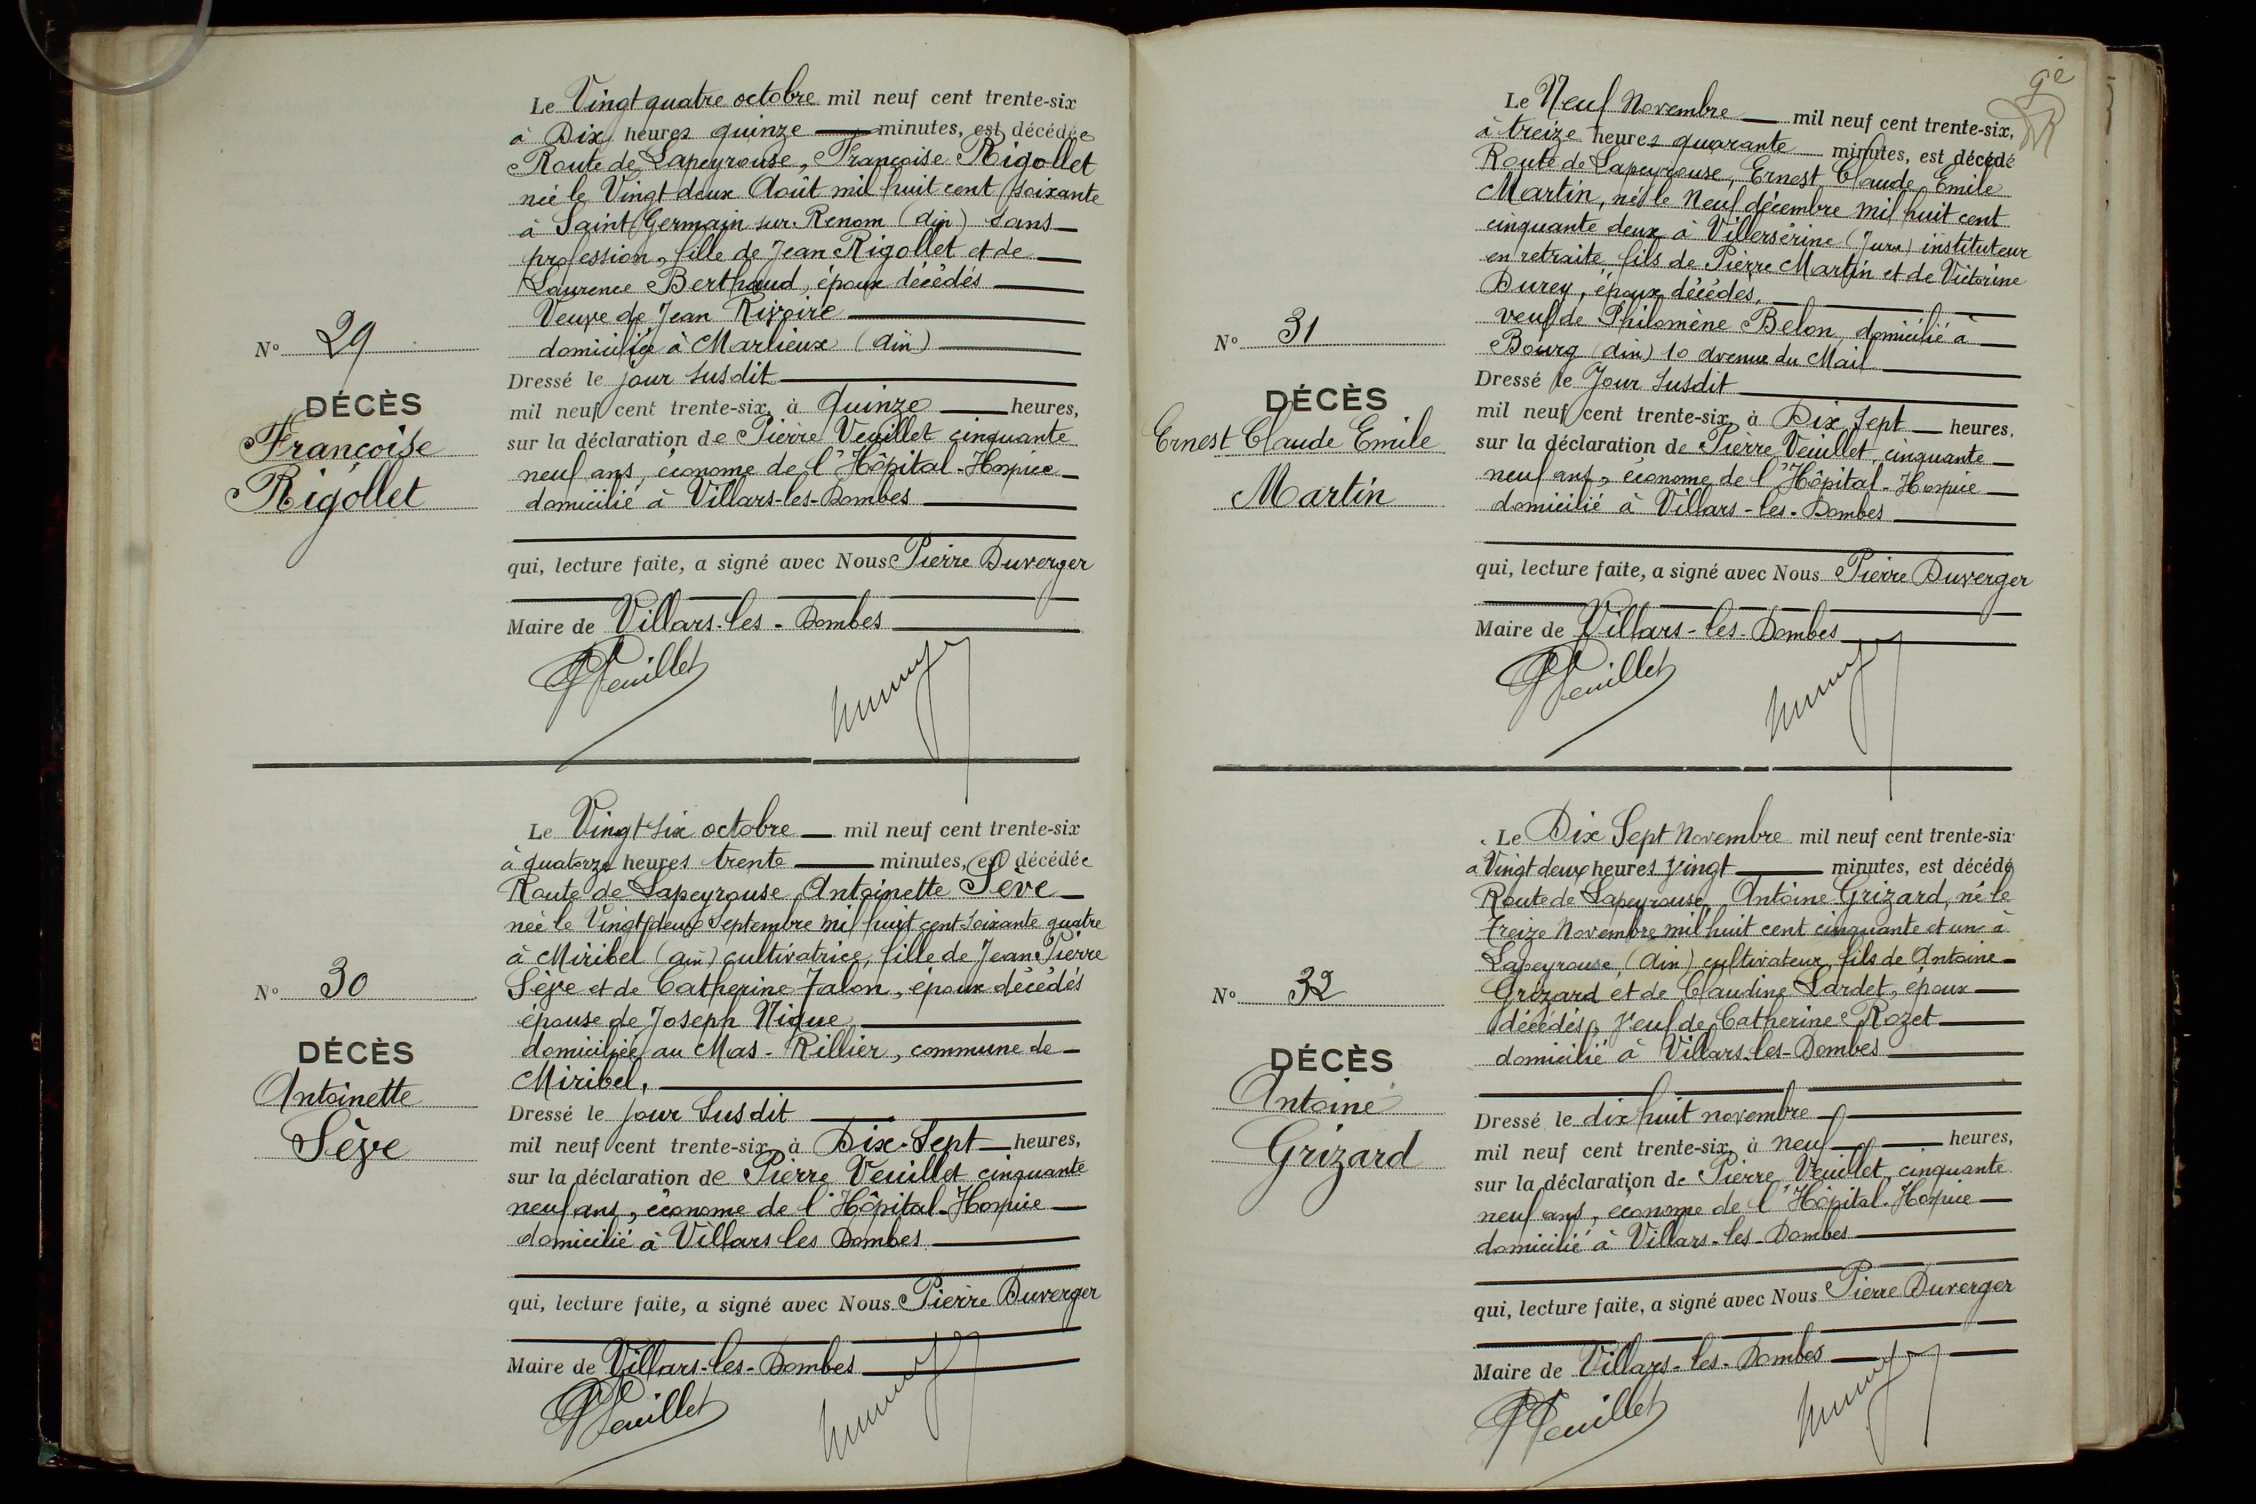 Le Vingt quatre octobre mil neuf cent trente-six
à Dix heures quinze minutes, est décédée
Route de Lapeyrouse, Françoise Rigollet
née le Vingt deux Août mil huit cent soixante
à Saint Germain sur Renom (Ain) sans
profession, fille de Jean Rigollet et de
Laurence Berthaud, époux décédés
Veuve de Jean Rivoire
domiciliée à Marlieux (Ain)
Dressé le jour susdit
mil neuf cent trente-six, à quinze heures,
sur la déclaration de Pierre Veuillet cinquante
neuf ans, économe de l'Hôpital-Hospice
domicilié à Villars-les-Dombes
qui, lecture faite, a signé avec Nous Pierre Duverger
Maire de Villars-les-Dombes
PVeuillet
N° 29
DÉCÈS
Françoise
Rigollet
Le Vingt six octobre mil neuf cent trente-six
à quatorze heures trente minutes, est décédée
Route de Lapeyrouse, Antoinette Sève
née le Vingt deux Septembre mil huit cent soixante quatre
à Miribel (Ain) cultivatrice, fille de Jean Pierre
Sève et de Catherine Jalon, époux décédés
épouse de Joseph Nique
domiciliée au Mas-Rillier, commune de
Miribel.
Dressé le jour susdit
mil neuf cent trente-six, à Dix-Sept heures,
sur la déclaration de Pierre Veuillet cinquante
neuf ans, économe de l'Hôpital-Hospice
domicilié à Villars les Dombes
qui, lecture faite, a signé avec Nous Pierre Duverger
Maire de Villars-les-Dombes
PVeuillet
N° 30
DÉCÈS
Antoinette
Sève
ge
Le Neuf Novembre mil neuf cent trente-six,
à treize heures quarante minutes, est décédé
Route de Lapeyrouse, Ernest Claude Emile
Martin, né le Neuf décembre mil huit cent
cinquante deux à Villersérine (Jura) instituteur
en retraite, fils de Pierre Martin et de Victorine
Durey, époux décédés,
veuf de Philomène Belon, domicilié à
Bourg (Ain) 10 avenue du Mail
Dressé le Jour susdit
mil neuf cent trente-six, à Dix Sept heures,
sur la déclaration de Pierre Veuillet, cinquante
neuf ans, économe de l'Hôpital-Hospice
domicilié à Villars-les-Dombes
qui, lecture faite, a signé avec Nous Pierre Duverger
Maire de Villars-les-Dombes
PVeuillet
N° 31
DÉCÈS
Ernest Claude Emile
Martin
Le Dix Sept Novembre mil neuf cent trente-six
à Vingt deux heures vingt minutes, est décédé
Route de Lapeyrouse, Antoine Grizard, né le
treize Novembre mil huit cent cinquante et un à
Lapeyrouse (Ain) cultivateur, fils de Antoine
Grizard et de Claudine Lardet, époux
décédés, veuf de Catherine Rozet
domicilié à Villars-les-Dombes
Dressé le dix huit novembre
mil neuf cent trente-six, à neuf heures,
sur la déclaration de Pierre Veuillet, cinquante
neuf ans, économe de l'Hôpital-Hospice
domicilié à Villars-les-Dombes
qui, lecture faite, a signé avec Nous Pierre Duverger
Maire de Villars-les-Dombes
PVeuillet
N° 32
DÉCÈS
Antoine
Grizard